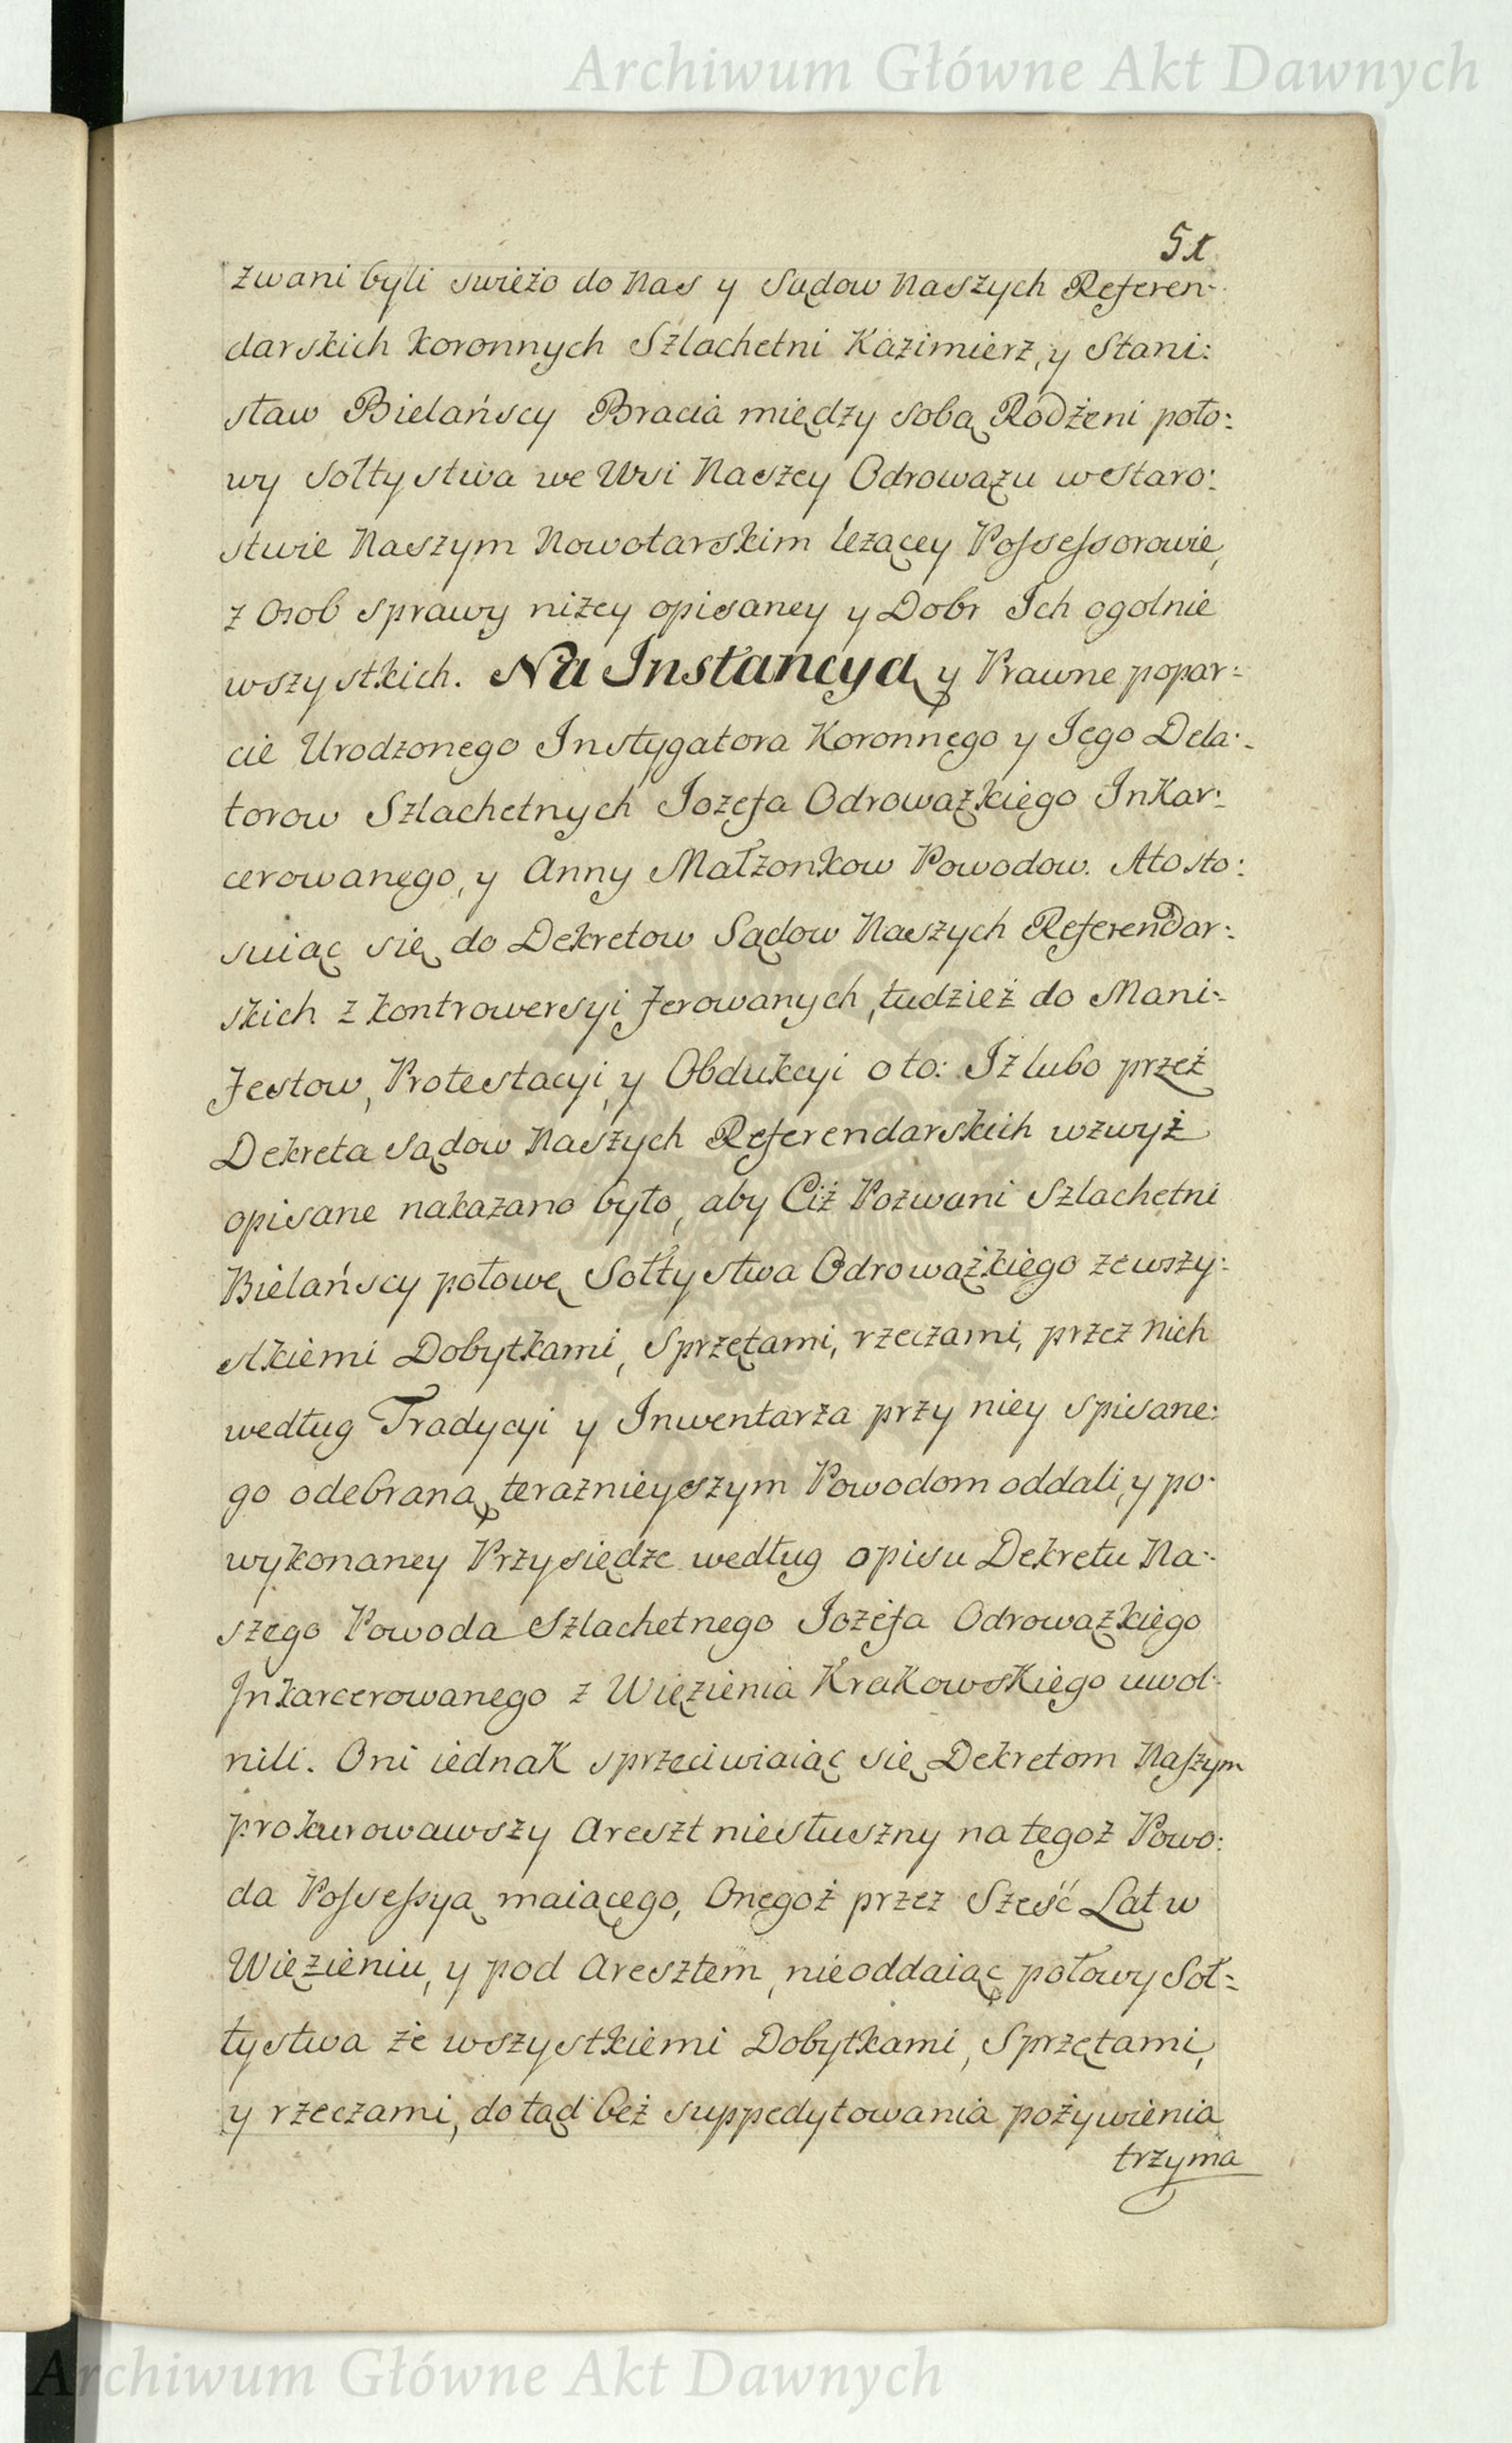 Archiwum Główne Akt Dawnych
51
zwani byli swieżo do Nas y Sądow Naszych Referen-
darskich koronnych Szlachetni Kazimierz, y Stani:
sław Bielańscy Bracia między sobą Rodżeni poło:
wy Sołtystwa we Wsi Naszey Odrowązu w Staro:
stwie Naszym Nowotarskim leżącey Possessorowie,
z Osob sprawy niżey opisaney y Dobr Ich ogolnie
wszystkich. Na Instancyą y Prawne popar-
cie Urodzonego Instygatora Koronnego y Jego Dela-
torow Szlachetnych Jozefa Odrowązkiego Inkar:
cerowanego, y Anny Małżonkow Powodow. A to sto:
suiąc się do Dekretow Sądow Naszych Referendar:
skich z kontrowersyi ferowanych, tudzież do Mani-
festow, Protestacyi, y Obdukcyi o to: Iż lubo przeż
Dekreta Sądow Naszych Referendarskich wzwyż
opisane nakazano było, aby Ciż Pozwani Szlachetni
Bielańscy połowę Sołtystwa Odrowążkiego ze wszy:
stkiemi Dobytkami, Sprzętami, rzeczami, przez nich
według Tradycyi y Inwentarza przy niey spisane:
go odebraną teraznieyszym Powodom oddali, y po
wykonaney Przysiędze według opisu Dekretu Na-
szego Powoda Szlachetnego Jozefa Odrowązkiego
Inkarcerowanego z Więzienia Krakowskiego uwol-
nili. Oni iednak sprzeciwiaiąc się Dekretom Naszym
prokurowawszy Areszt niesłuszny na tegoż Powo:
da Possessyą maiącego, Onegoż przez Sześć Lat w
Więzieniu, y pod Aresztem, nieoddaiąc połowy Soł-
tystwa że wszystkiemi Dobytkami, Sprzętami,
y rzeczami, do tąd beż suppedytowania pożywienia
trzyma
Archiwum Główne Akt Dawnych